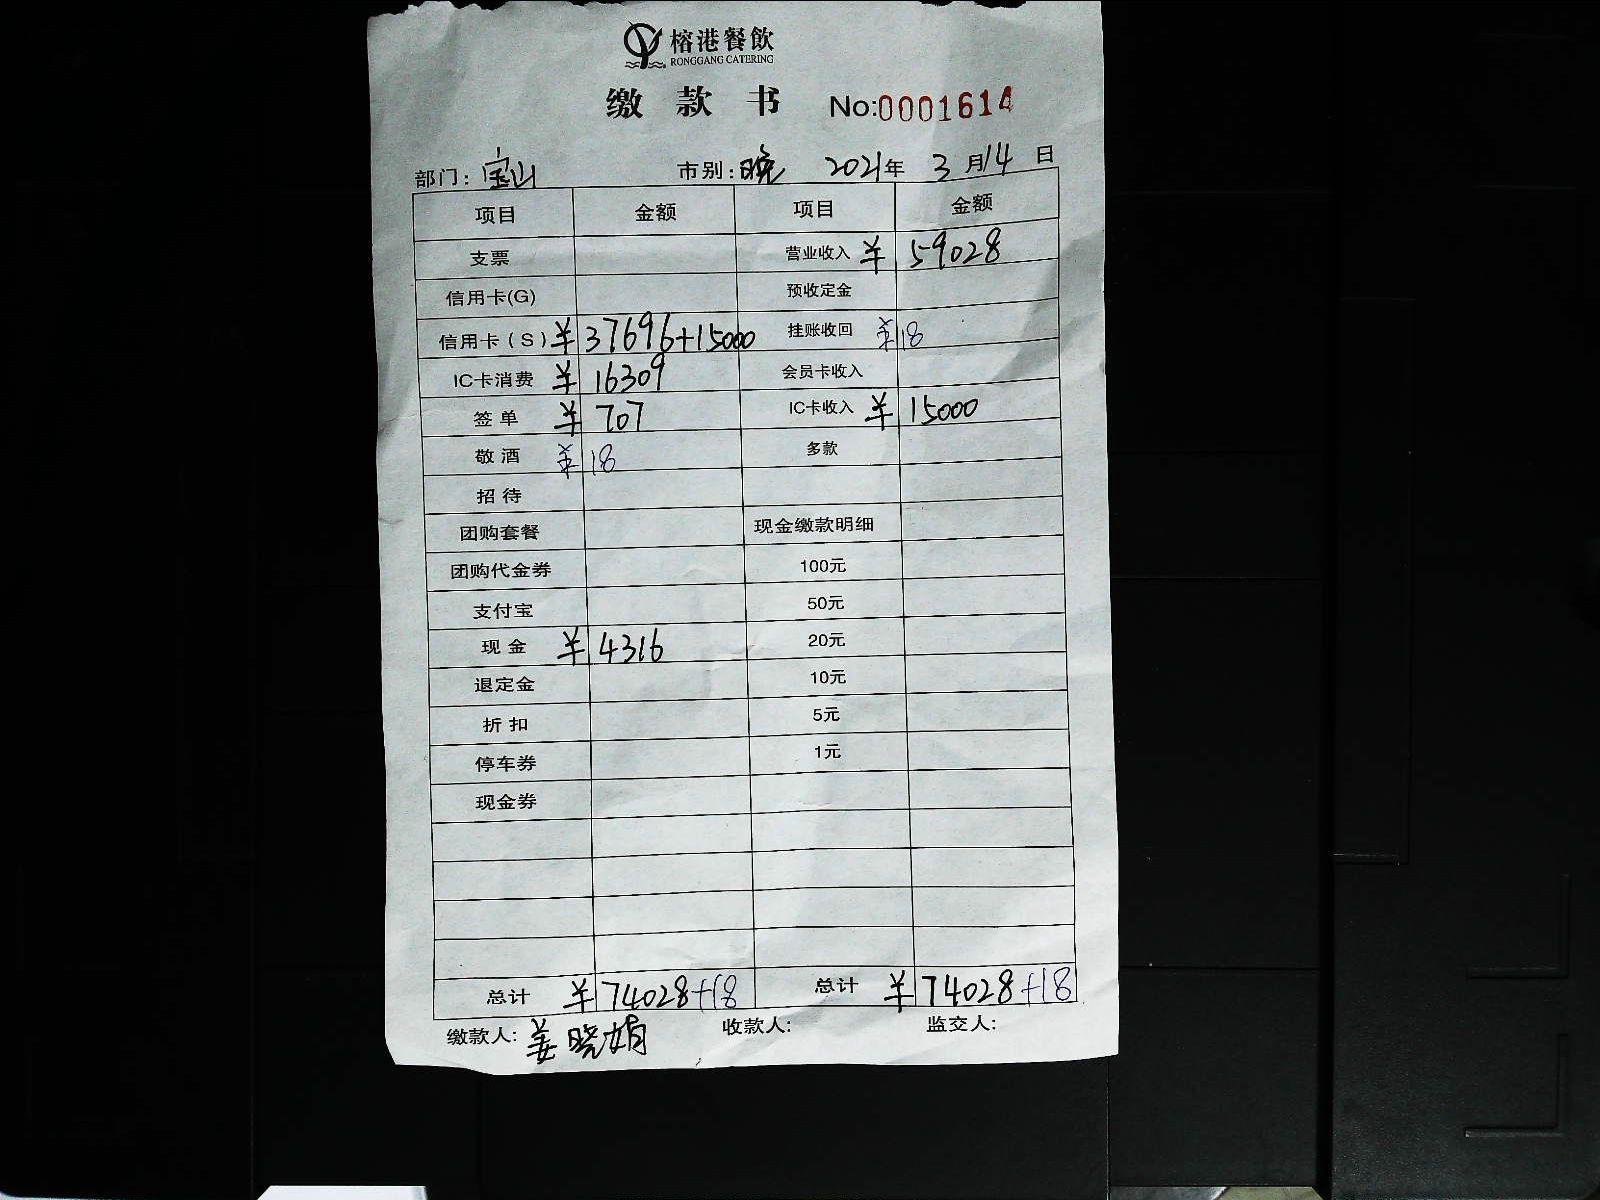 榕港餐飲
RONGGANG CATERING
缴款书 No:0001614
部门:宝山 市别:晚 2021年3月14日
项目 金额 项目 金额
支票 营业收入 ¥59028
信用卡(G) 预收定金
信用卡(S) ¥37696+15000 挂账收回 ¥18
IC卡消费 ¥16309 会员卡收入
签单 ¥707 IC卡收入 ¥15000
敬酒 ¥18 多款
招待
团购套餐 现金缴款明细
团购代金券 100元
支付宝 50元
现金 ¥4316 20元
退定金 10元
折扣 5元
停车券 1元
现金券
总计 ¥74028+18 总计 ¥74028+18
缴款人:姜晓娟 收款人: 监交人: